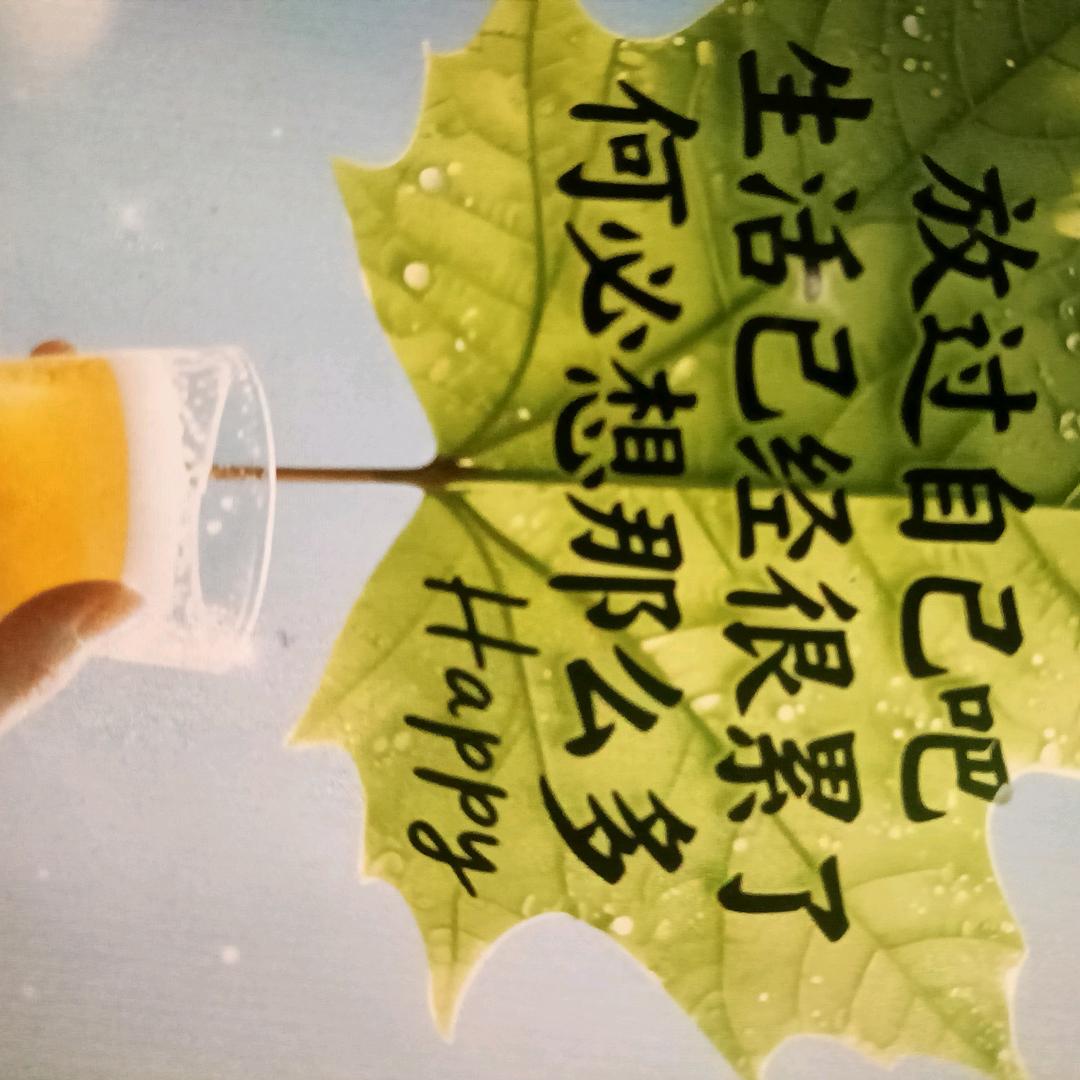 放过自己吧
生活已经很累了
何必想那么多
Happy